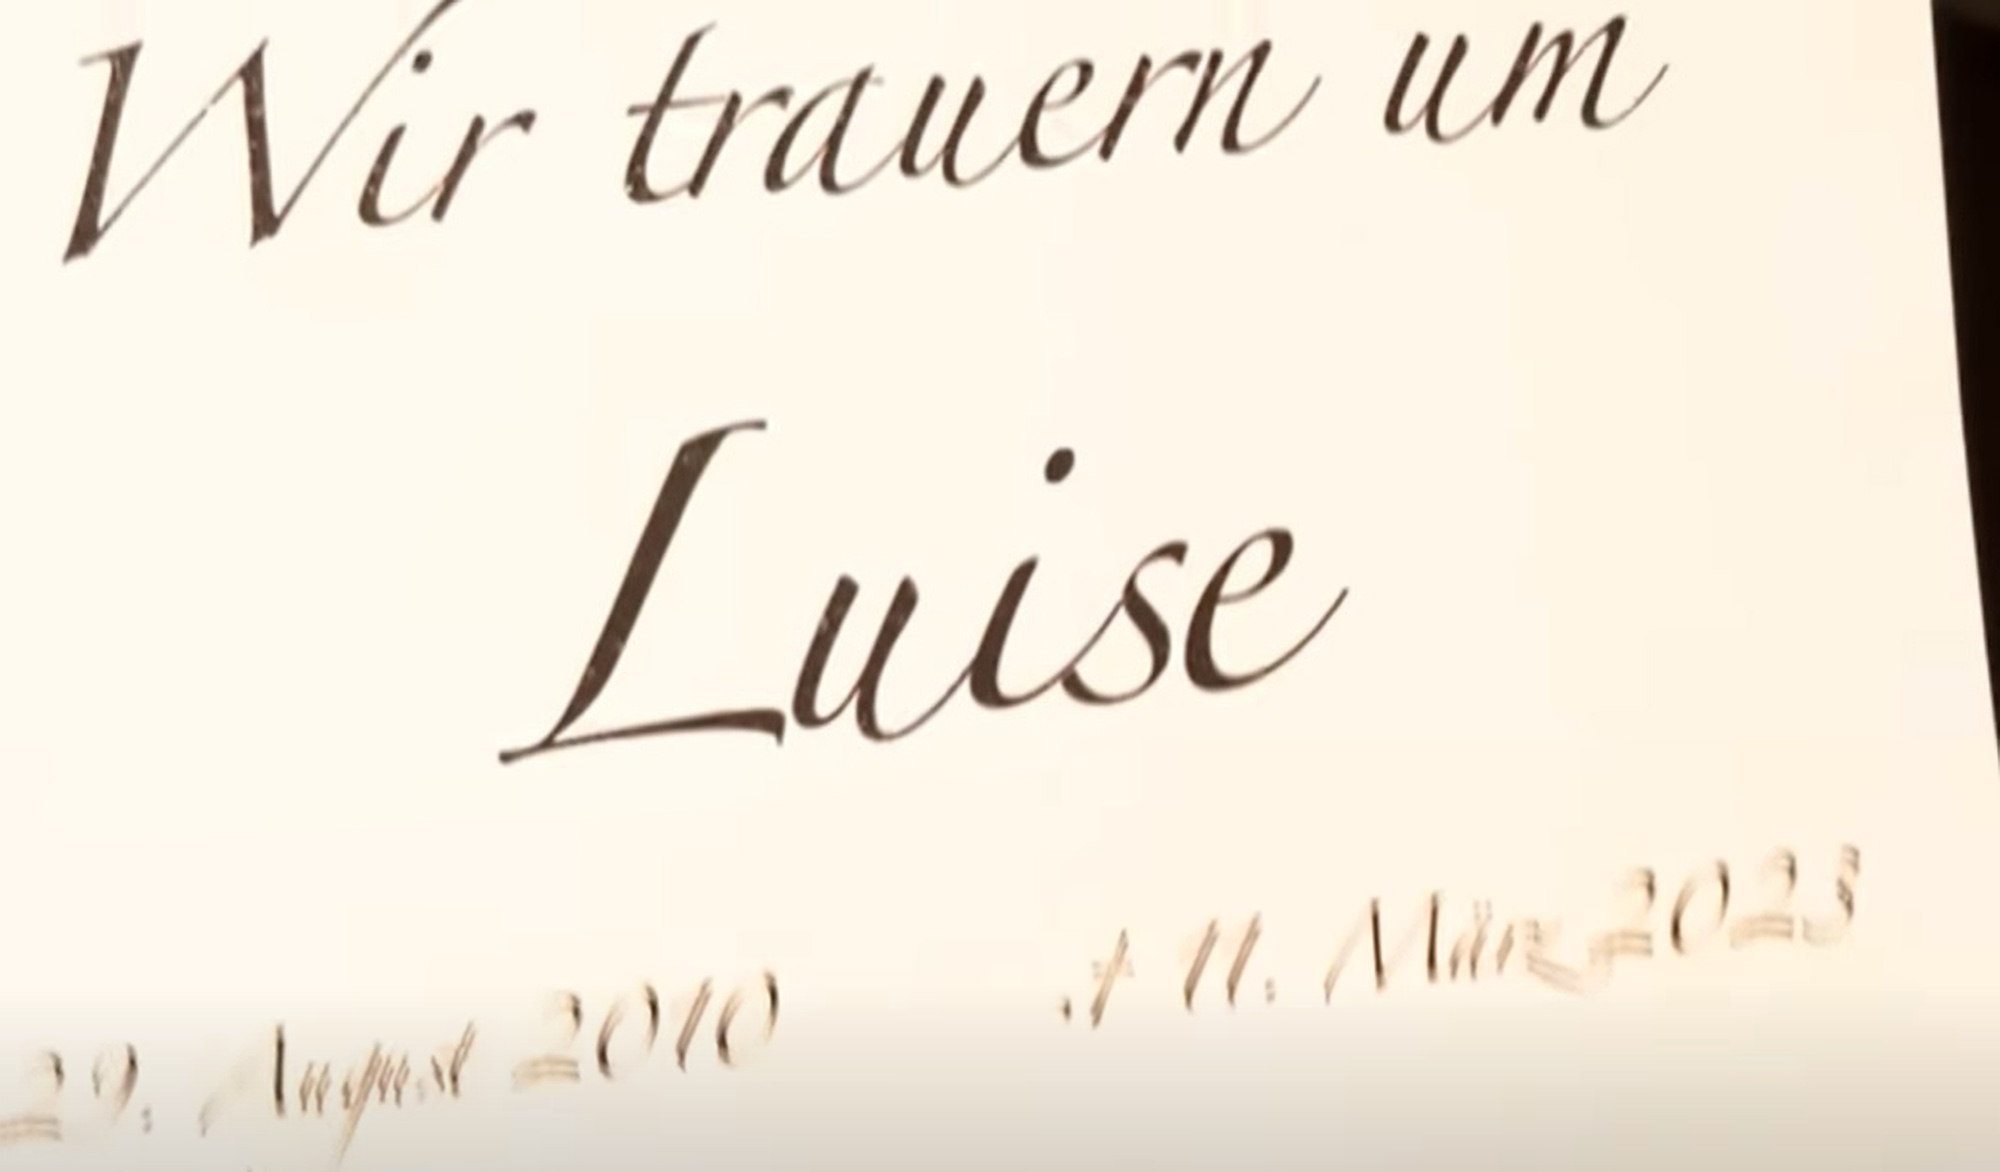 Wir trauern um
Luise
29. August 2010 † 11. März 2023